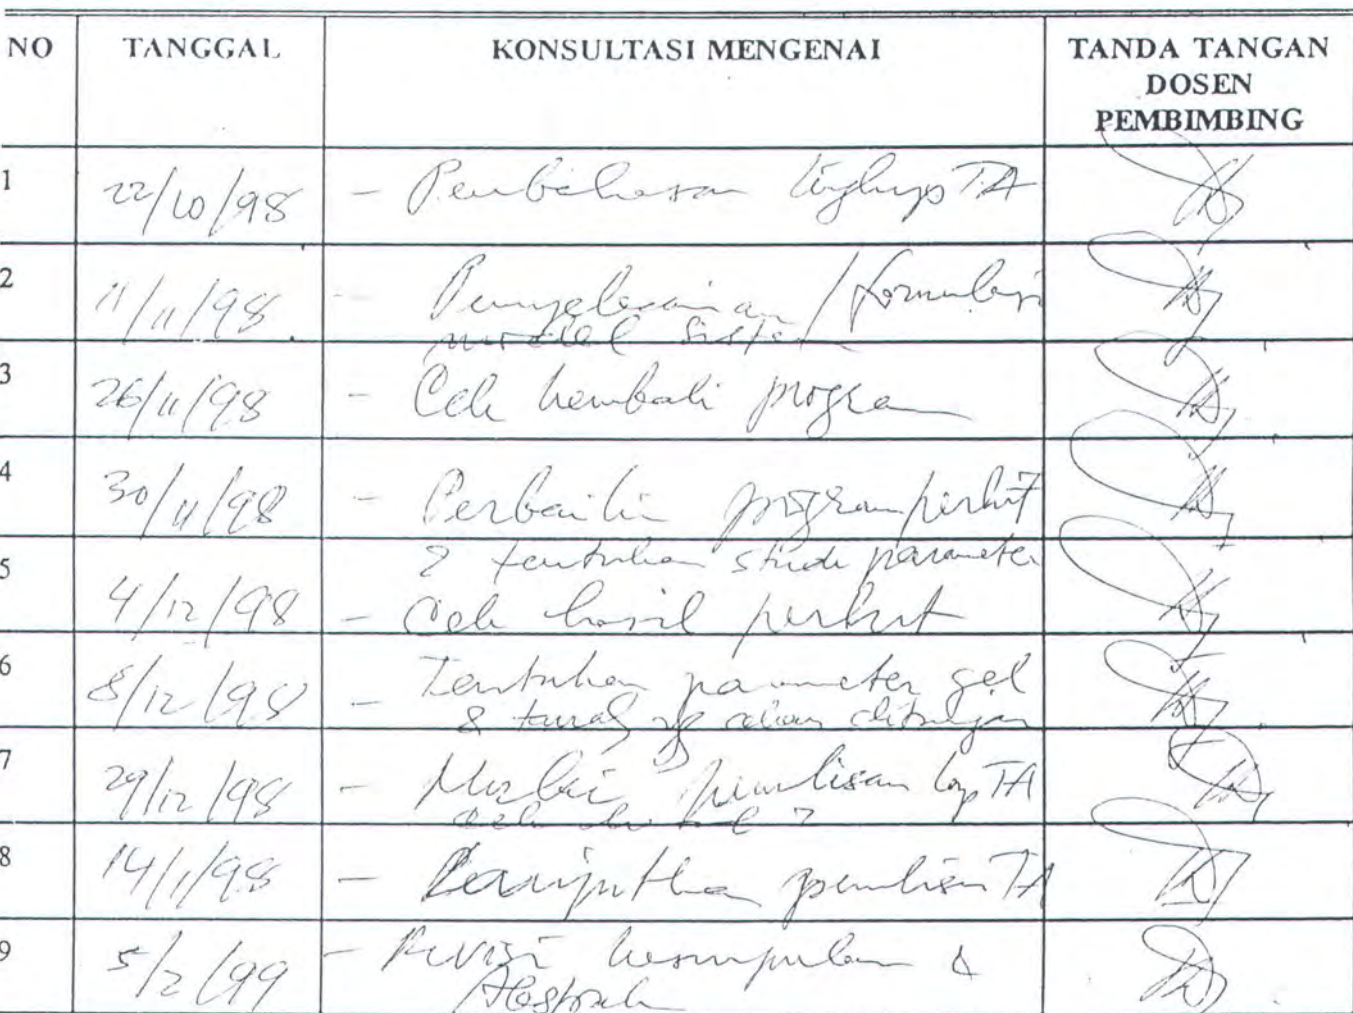 NO TANGGAL KONSULTASI MENGENAI TANDA TANGAN
DOSEN
PEMBIMBING
1 22/10/98 - Pembahasan lingkup TA
2 11/11/98 - Penyelesaian / formulasi
model sistem
3 26/11/98 - Cek kembali program
4 30/11/98 - Perbaiki program perhit
& tentukan studi parameter
5 4/12/98 - Cek hasil perhit
6 8/12/98 - Tentukan parameter gel
& yg akan
7 29/12/98 - Mulai penulisan lap TA
8 14/1/98 - Lanjutkan penulisan TA
9 5/2/99 - Revisi kesimpulan &
Abstrak